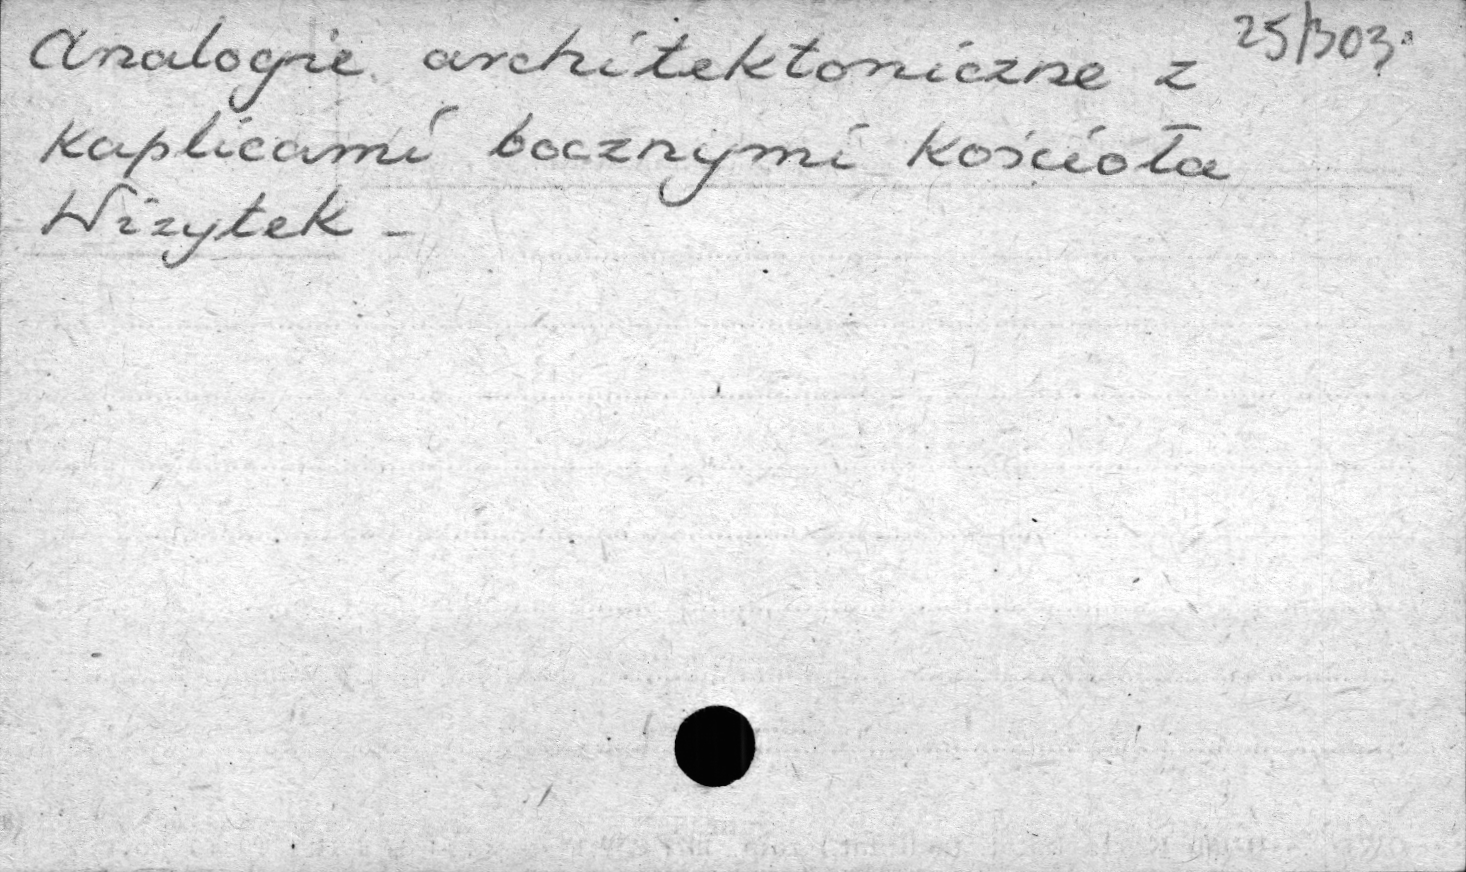 Analogie architektoniczne z 25/303.
kaplicami bocznymi kościoła
Wizytek -